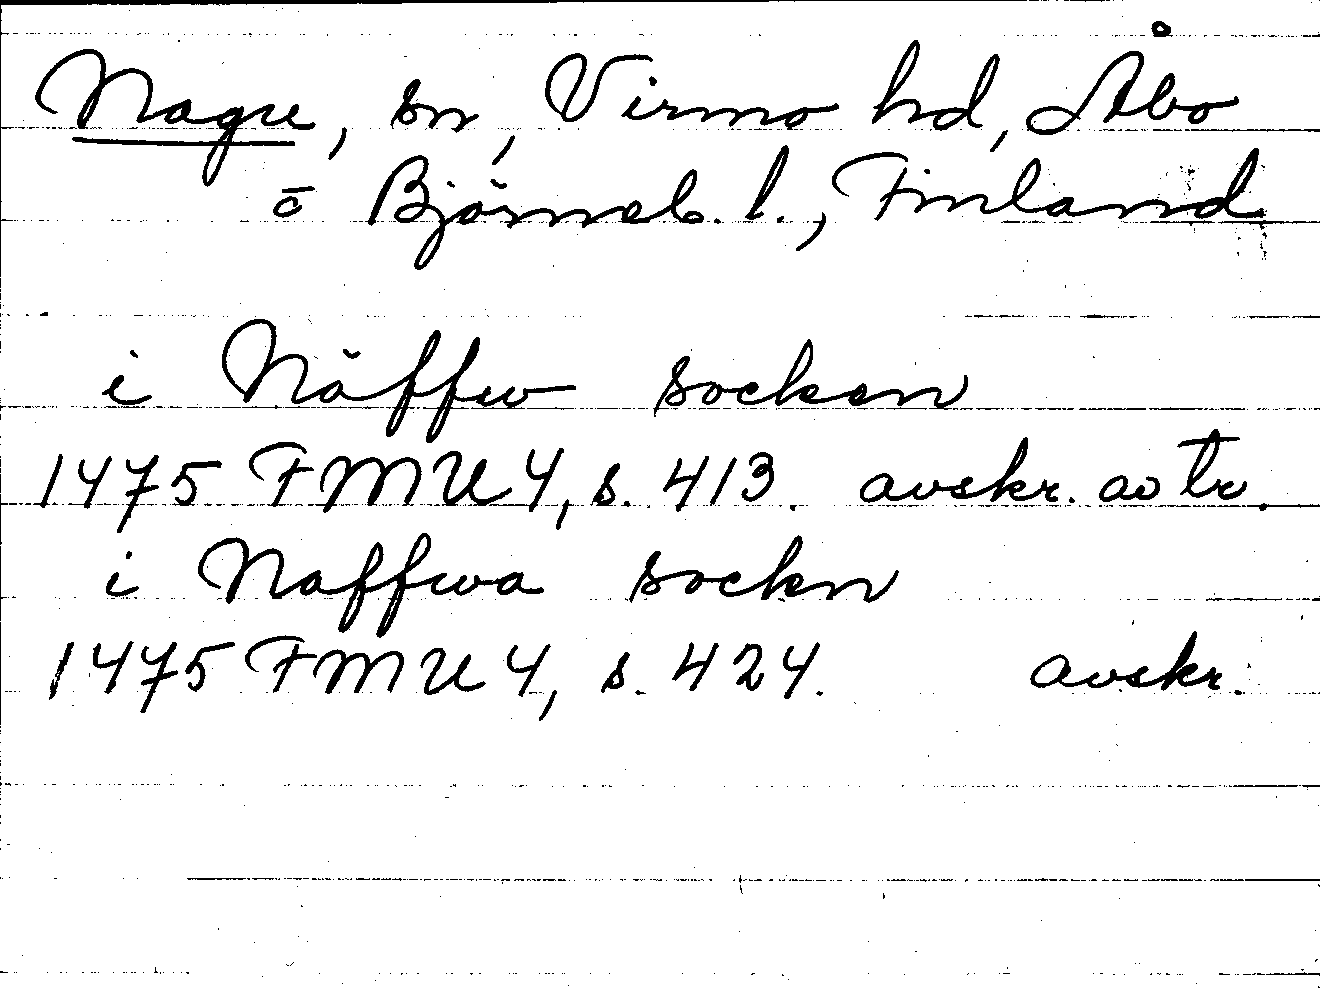 Nagu, sn, Virmo hd, Åbo
o̅ Björneb. l., Finland
i Näffw socken
1475 FMU 4, s. 413. avskr. av tr.
i Naffwa sockn
1475 FMU 4, s. 424. avskr.